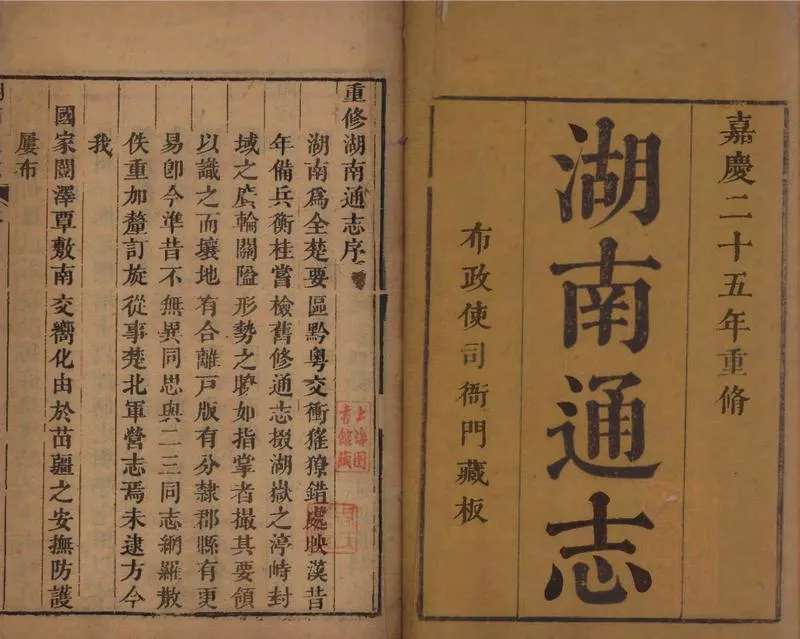 嘉慶二十五年重脩
湖南通志
布政使司衙門藏板
重修湖南通志序
湖南爲全楚要區黔粤交衝猺獠錯處映漢昔
年備兵衡桂嘗檢舊修通志掇湖嶽之渟峙封
域之廣輪關隘形勢之瞭如指掌者撮其要領
以識之而壤地有合離戸版有分隷郡縣有更
易卽今準昔不無異同思與二三同志網羅散
佚重加釐訂旋從事楚北軍營志焉未逮方今
我
國家闓澤覃敷南交嚮化由於苗疆之安撫防護
屢布
上海圖
書館藏